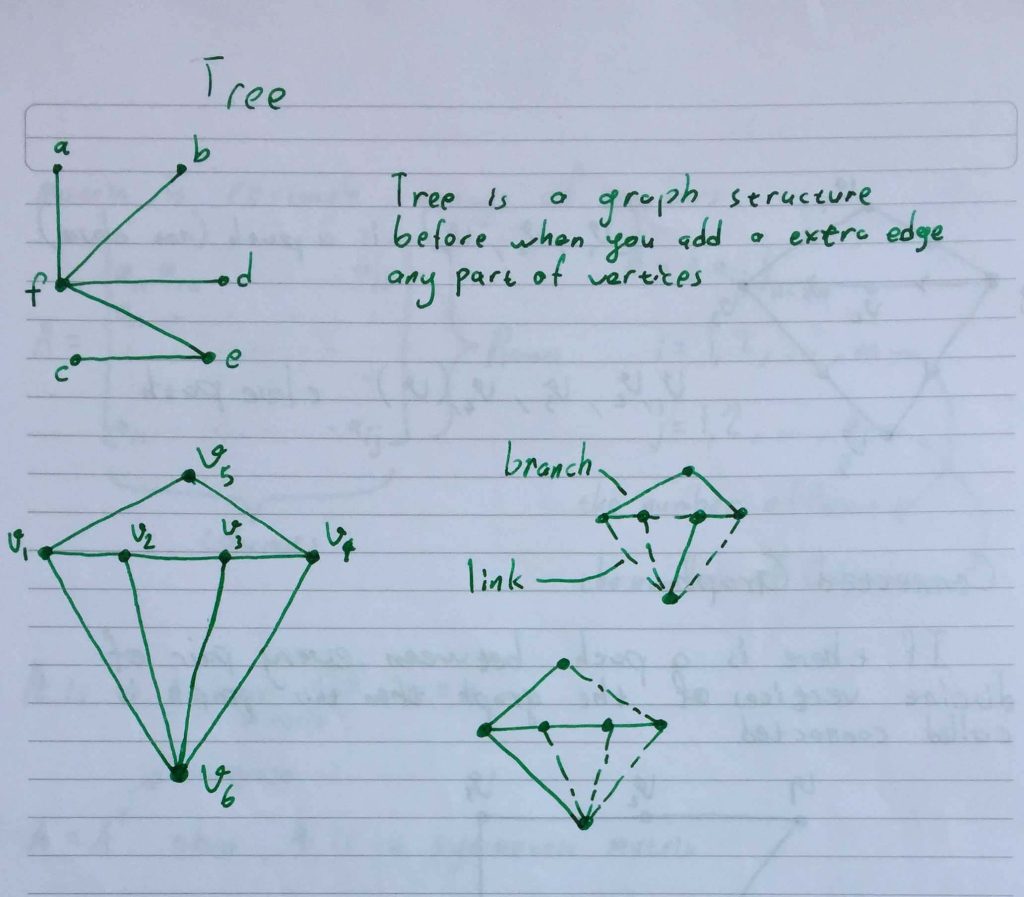 Tree
a
b
Tree is a graph structure
before when you add a extra edge
any part of vertices
f
d
c
e
v5
v1
v2
v3
v4
v6
branch
link